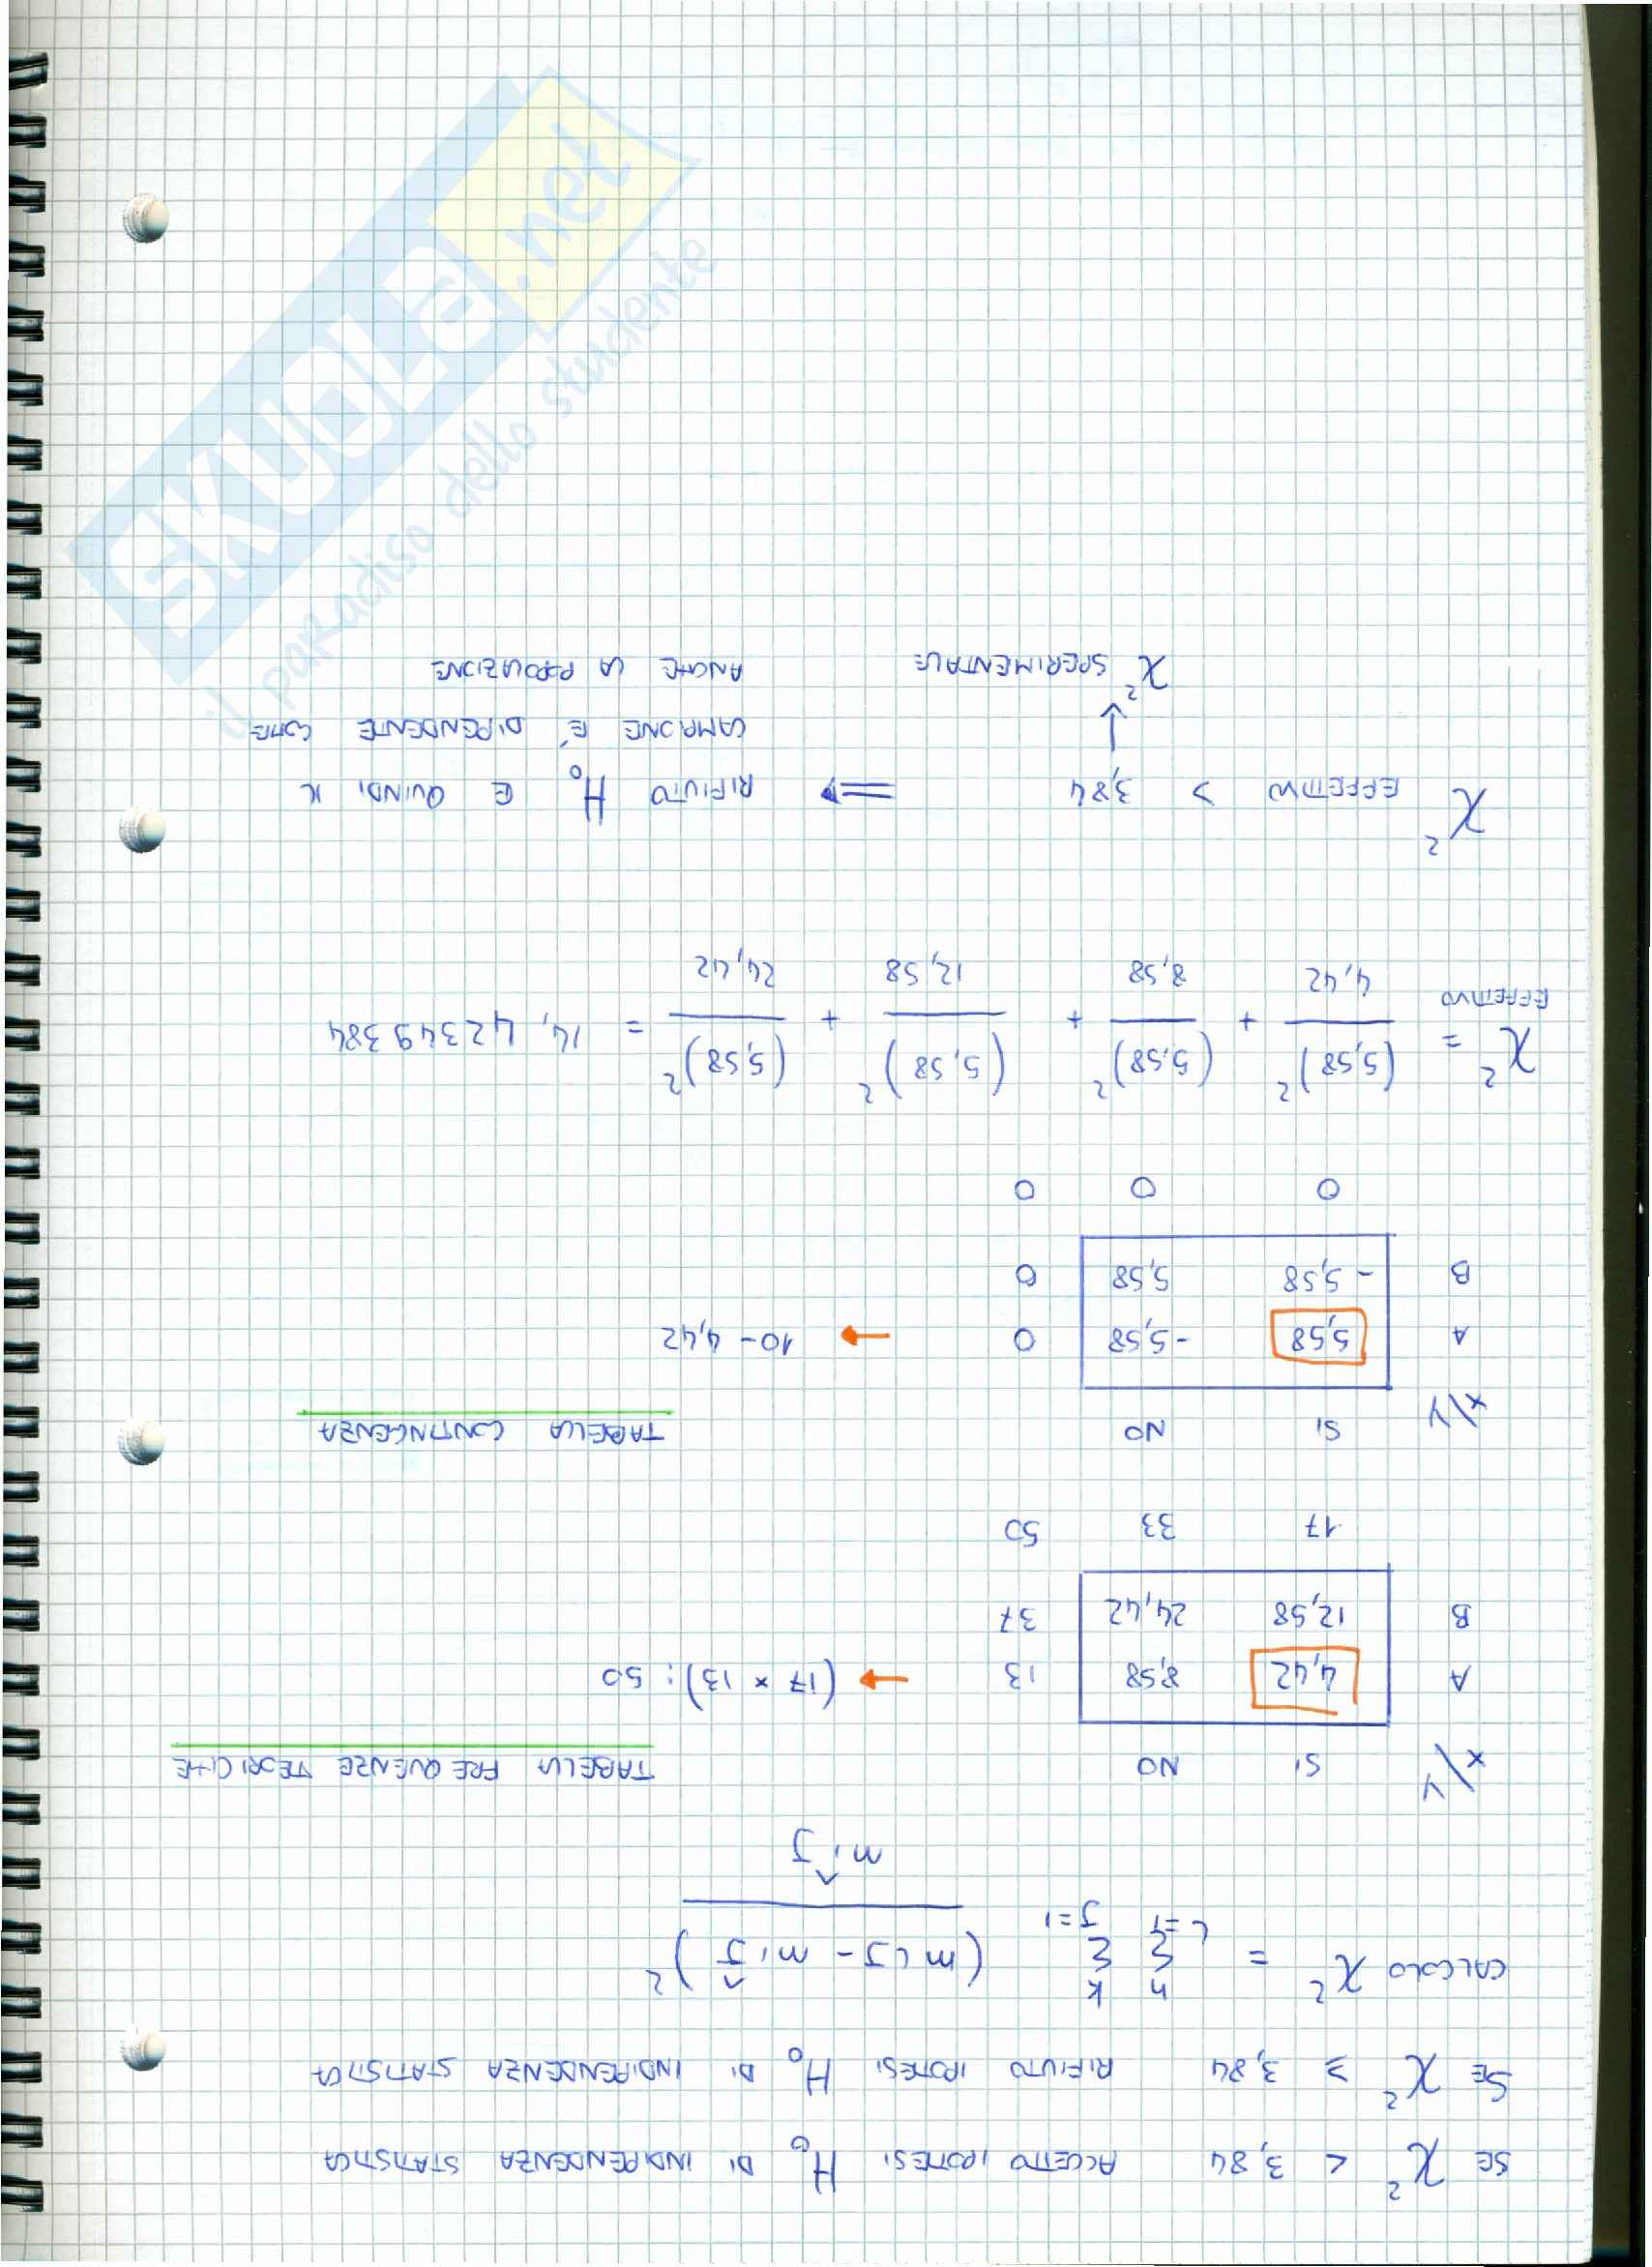 SE χ² < 3,84 ACCETTO IPOTESI H₀ DI INDIPENDENZA STATISTICA
SE χ² ≥ 3,84 RIFIUTO IPOTESI H₀ DI INDIPENDENZA STATISTICA
CALCOLO χ² = Σ(i=1, h) Σ(J=1, k) (miJ - m̂iJ)² / m̂iJ
X\Y SI NO TABELLA FREQUENZE TEORICHE
A 4,42 8,58 13 ← (17 × 13) : 50
B 12,58 24,42 37
17 33 50
X\Y SI NO TABELLA CONTINGENZA
A 5,58 -5,58 0 ← 10 - 4,42
B -5,58 5,58 0
0 0 0
χ² EFFETIVO = (5,58)²/4,42 + (5,58)²/8,58 + (5,58)²/12,58 + (5,58)²/24,42 = 14,42349384
χ² EFFETIVO > 3,84 ⇒ RIFIUTO H₀ E QUINDI IL
↑ CAMPIONE E' DIPENDENTE COME
χ² SPERIMENTALE ANCHE LA POPOLAZIONE
SKUOLA.net
il paradiso dello studente